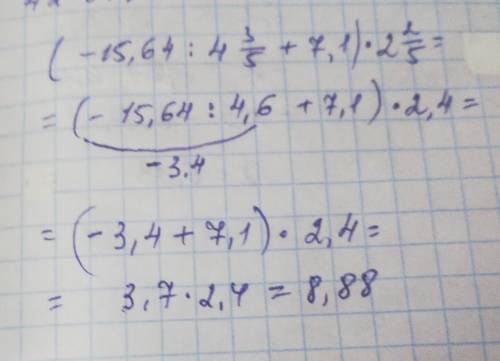 ( -15,64 : 4 3/5 + 7,1) · 2 2/5 =
= (- 15,64 : 4,6 + 7,1) · 2,4 =
-3.4
= (-3,4 + 7,1) · 2,4 =
= 3,7 · 2,4 = 8,88